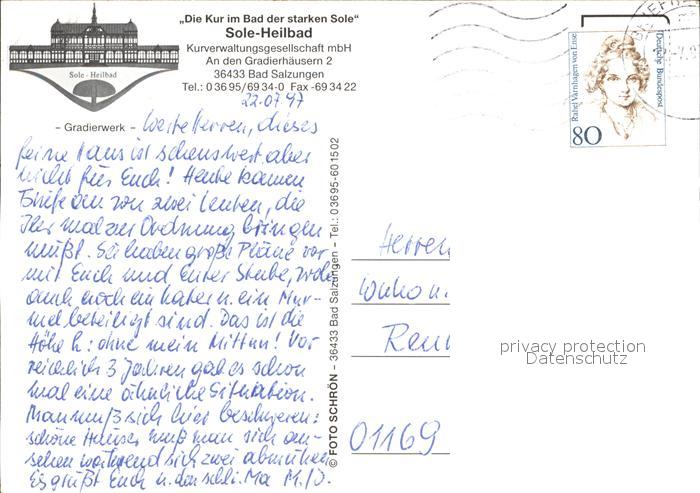 „Die Kur im Bad der starken Sole“
Sole-Heilbad
Kurverwaltungsgesellschaft mbH
An den Gradierhäusern 2
36433 Bad Salzungen
Tel.: 0 36 95/69 34-0 Fax -69 34 22
Sole - Heilbad
- Gradierwerk -
22.07.97
Werte Herren, dieses
feine Haus ist sehenswert aber
nicht für Euch! Heute kamen
Briefe an von zwei Leuten, die
Ihr mal zur Ordnung bringen
müßt. Sie haben große Pläne vor
mit Euch und Eurer Stube,
auch noch ein Kater u. ein Mur-
mel beteiligt sind. Das ist die
Höhe h: ohne mein Mittun! Vor
reichlich 3 Jahren gab es schon
mal eine ähnliche Situation.
Man muß sich hier beschweren:
schöne Häuser muß man sich an-
sehen während sich zwei abmühen
Es grüßt Euch u. den schl. Ma M./J.
© FOTO SCHRÖN - 36433 Bad Salzungen - Tel.: 03695-601502
Rahel Varnhagen von Ense
Deutsche Bundespost
80
Herren
u.
01169
privacy protection
Datenschutz